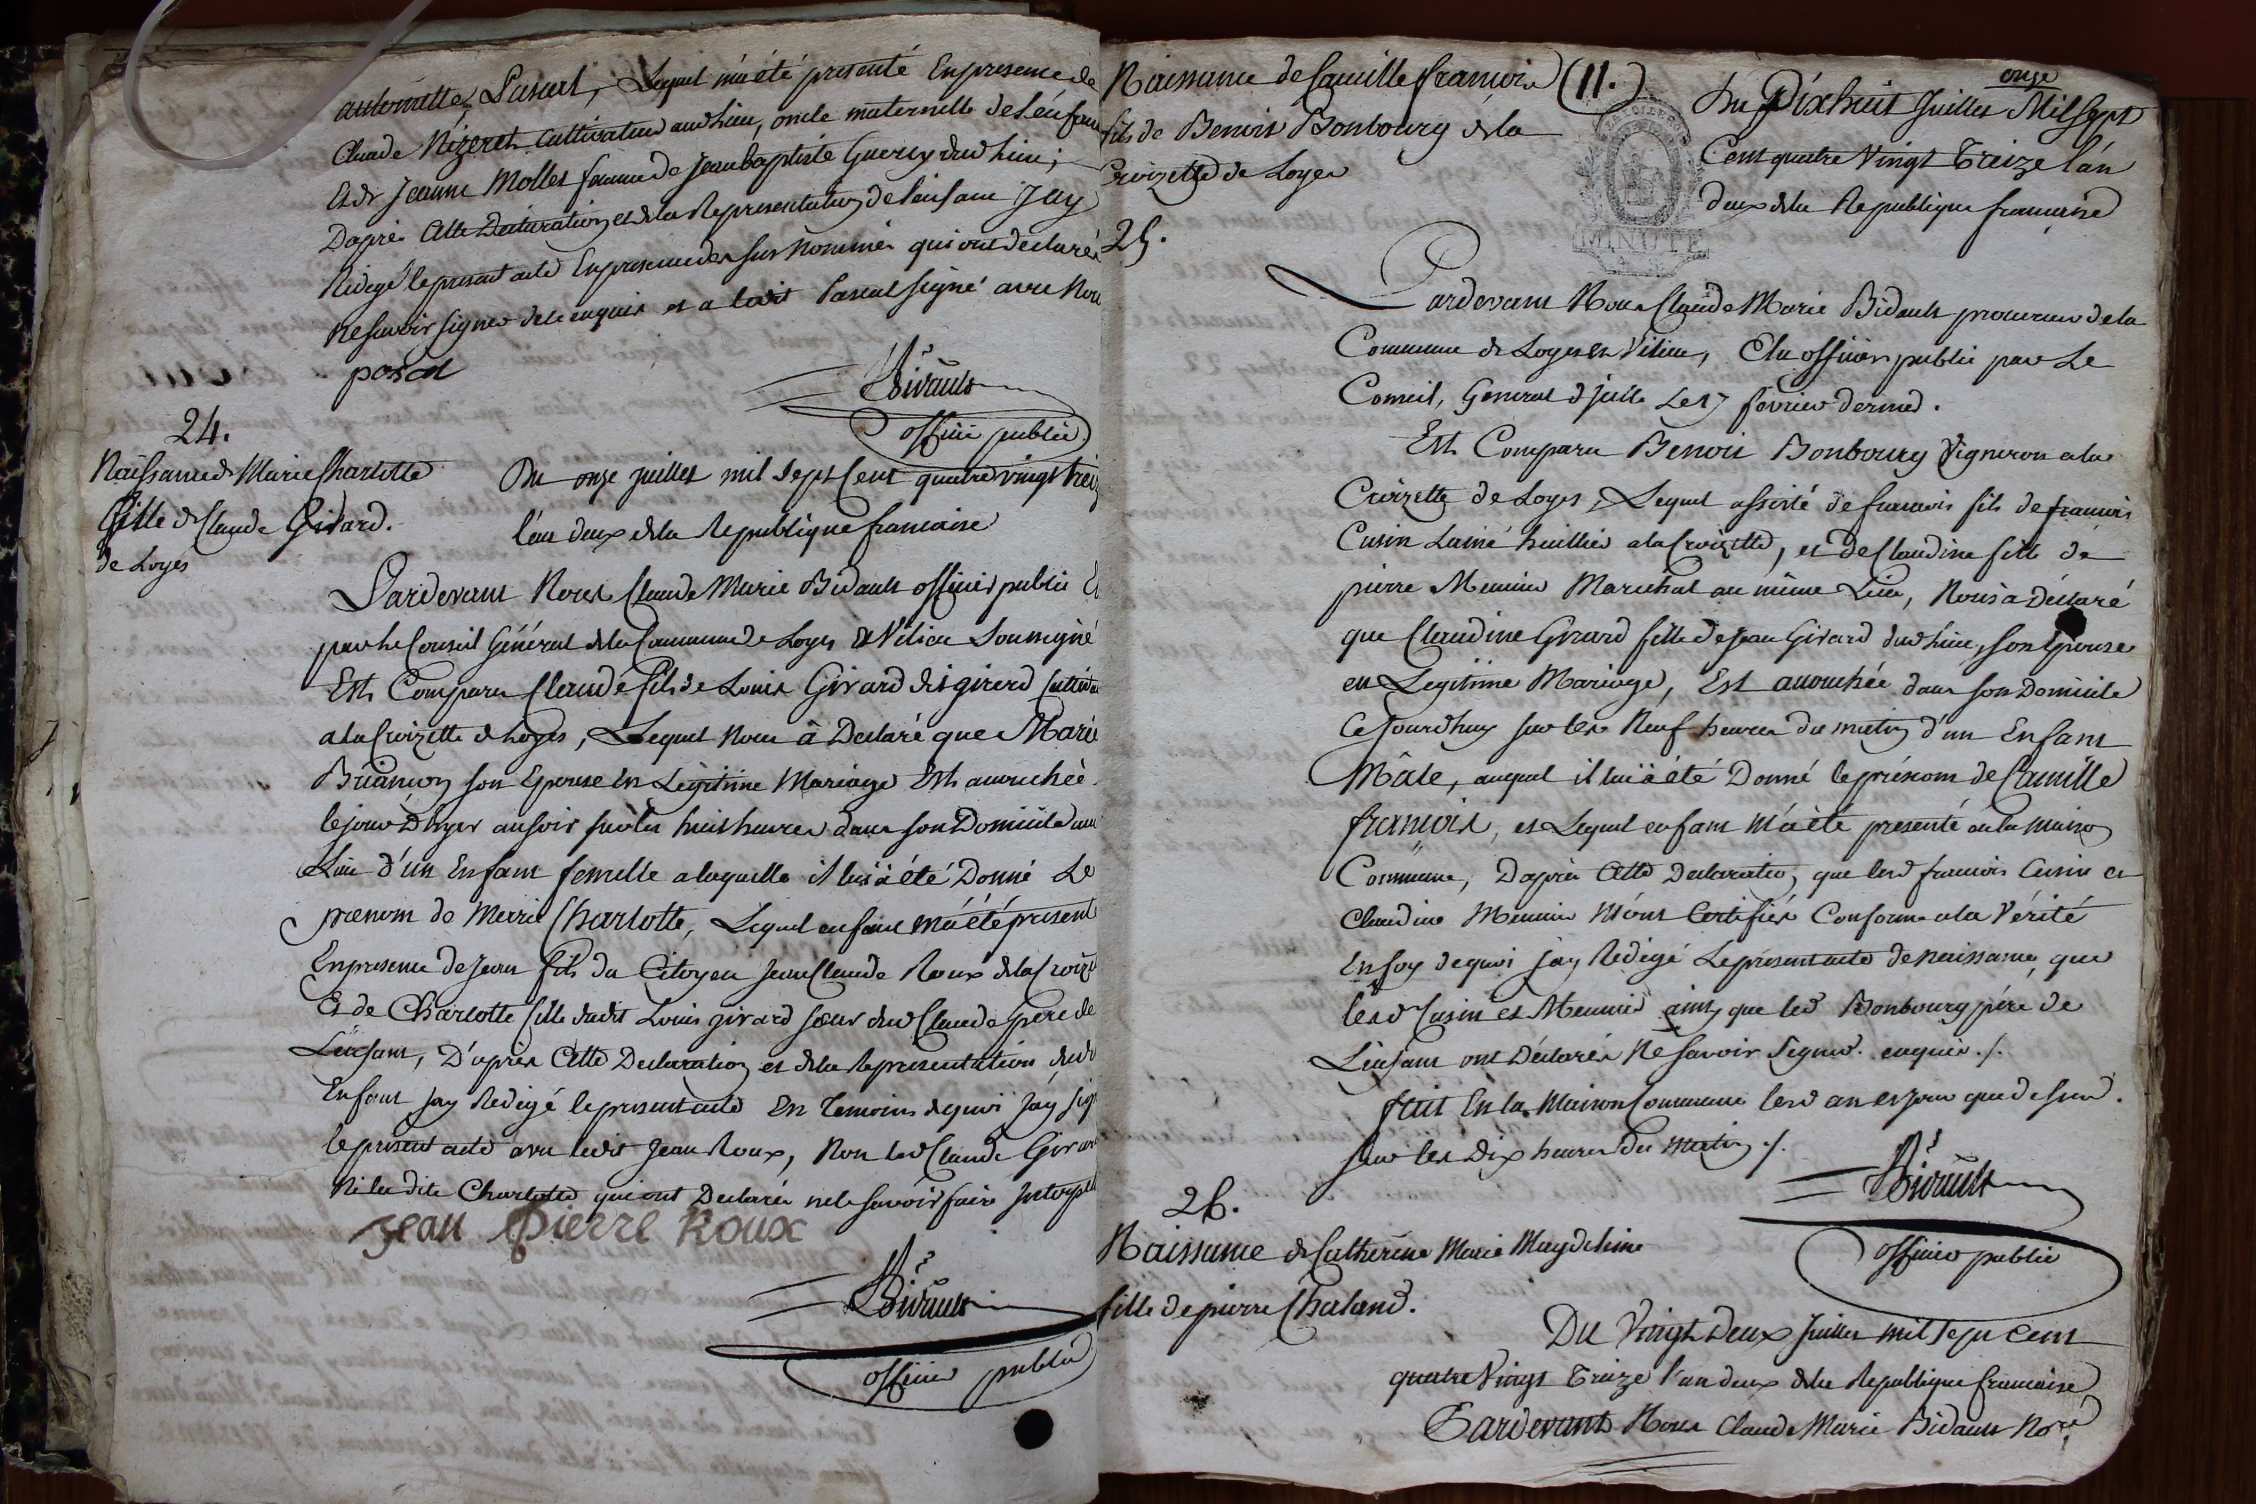 antoinette Pascal, Lequel m'a été presenté En presence de
Claude Nizeret Cultivateur aud lieu, oncle maternelle de L'enfant
Et de Jeanne Mollet femme de Jean Baptiste Guerry dud lieu;
Dapres Cette Declaration et de la Representation de l'enfant Jay
Redigé le present acte En presence des sus nommés qui ont declarés
Ne savoir signer de ce enquis et a ledit Pascal signé avec Nous
pascal
Bidault
officier public
24.
Naissance de Marie Charlotte
fille de Claude Girard.
de Loyes
Du onze juillet mil sept Cent quatre vingt treize
l'an deux de la Republique francaise
Pardevant Nous Claude Marie Bidault officier public
par le Conseil Général de la Commune de Loyes et Vilieu Soussigné
Est Comparu Claude fils de Louis Girard dit girerd Cultivateur
a la Croizette de Loyes, Lequel Nous à Declaré que Marie
Briançon son Epouse En Légitime Mariage Est accouchée
le jour D'hyer au soir sur les huit heures dans son Domicile aud
Lieu d'un Enfant femelle a laquelle il lui à été Donné Le
prenom de Marie Charlotte, Lequel enfant m'a été presenté
En presence de Jean fils du Citoyen Jean Claude Roux de la Croizette
Et de Charlotte fille dudit Louis girard soeur dud Claude père de
L'enfant, D'après Cette Declaration et de la Representation dudit
Enfant Jay Redigé le present acte En Temoins de quoi Jay signé
le present acte avec ledit Jean Roux, Non led Claude Girard
Ni la dite Charlotte qui ont Declarés ne le savoir faire Interpellés
Jean Pierre Roux
Bidault
officier public
Naissance de Camille francois (11.)
fils de Benoit Bonbourg de la
Croizette de Loyes
25.
onze
Du Dixhuit Juillet Mil Sept
Cent quatre Vingt Treize l'an
deux de la Republique francaise
MINUTE
Pardevant Nous Claude Marie Bidault procureur de la
Commune de Loyes et Vilieu, Elu officier public par Le
Conseil, General d'jcelle Le 17 fevrier dernier.
Est Comparu Benoit Bonbourg Vigneron a la
Croizette de Loyes, Lequel assisté de francois fils de francois
Cusin Lainé huillier a la Croizette, et de Claudine fille de
pierre Meunier Marechal au même Lieu, Nous à Déclaré
que Claudine Girard fille de Jean Girard dud lieu, son Epouse
en Légitime Mariage, Est accouchée dans son Domicile
Ce jourdhuy sur les Neuf heures du matin d'un Enfant
Mâle, auquel il lui à été Donné le prénom de Camille
francois, et Lequel enfant m'a été presenté en la maison
Commune, D'après Cette Declaration que lesd francois Cusin et
Claudine Meunier M'ont Certifiés Conforme a la Vérité
En foy de quoi Jay Redigé Le présent acte de naissance, que
lesd Cusin et Meunier ainsy que led Bonbourg père de
L'enfant ont Déclarés Ne Savoir Signer. enquis ./.
fait En la Maison Commune lesd an et jour que dessus.
sur les Dix heures du matin ./.
Bidault
officier public
26.
Naissance de Catherine Marie Magdelaine
fille de pierre Chaland.
Du Vingt Deux Juillet mil sept cent
quatre Vingt Treize l'an deux de la Republique francaise
Pardevant Nous Claude Marie Bidault Nore